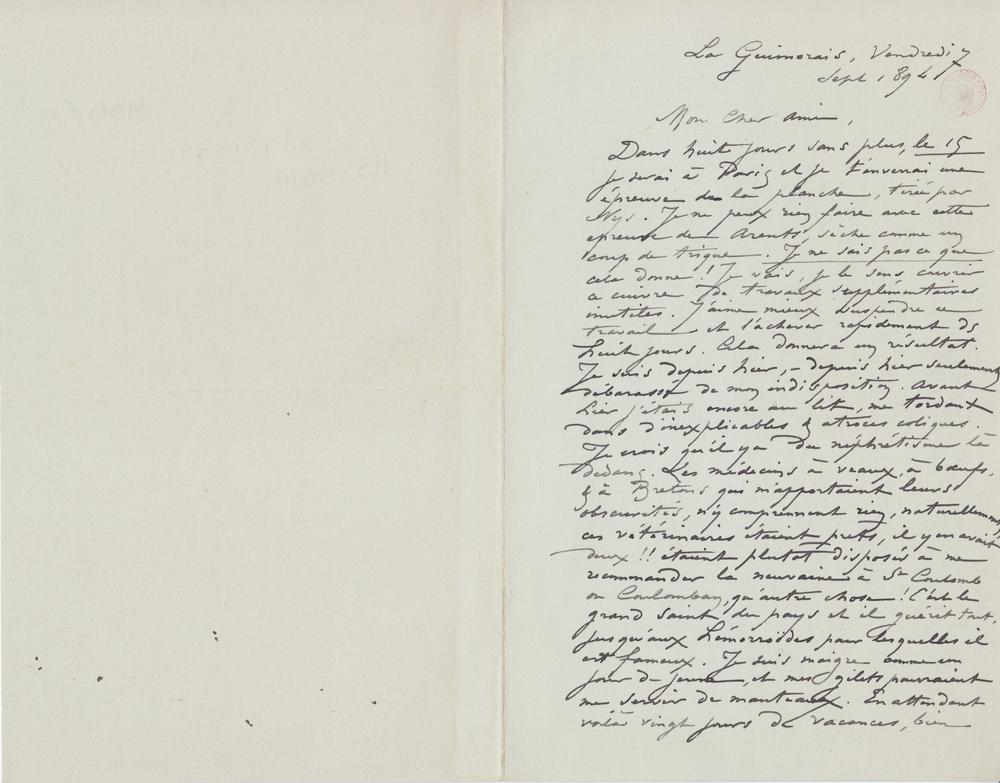 La Guimorais, Vendredi 7
Sept 1894
Mon Cher ami,
Dans huit jours sans plus, le 15
je serai à Paris et je t'enverrai une
épreuve de la planche, tirée par
Nys. Je ne peux rien faire avec cette
épreuve de Arents, sèche comme un
coup de trique. Je ne sais pas ce que
cela donne! Je vais, je le sens couvrir
ce cuivre de travaux supplémentaires
inutiles. J'aime mieux suspendre ce
travail et l'achever rapidement ds
huit jours. Cela donnera un résultat.
Je suis depuis hier, – depuis hier seulement
débarassé de mon indisposition. Avant
hier j'étais encore au lit, me tordant
dans d'inexplicables & atroces coliques.
Je crois qu'il y a du néphrétisme là
dedans. Les médecins à veaux, à bœufs,
& à Bretons qui m'apportaient leurs
obscurités, n'y comprennent rien, naturellement,
ces vétérinaires étaient prets, il y en avait
deux!! étaient plutôt disposés à me
recommander la neuvaine à St Coulomb
ou Coulomban, qu'autre chose! C'est le
grand saint du pays et il guérit tout,
jusqu'aux hémorroïdes pour lesquelles il
est fameux. Je suis maigre comme un
jour de jeune, et mes gilets pourraient
me servir de manteaux. En attendant
voilà vingt jours de vacances, bien
voor
historische
mensch